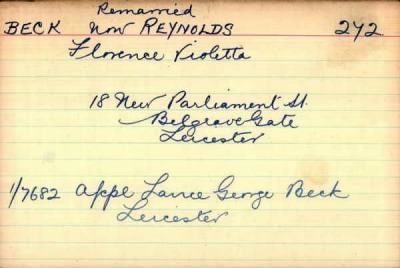 Remarried
BECK now REYNOLDS 272
Florence Violetta
18 New Parliament St.
Belgrave Gate
Leicester
1/7682 Appl Lance George Beck
Leicester